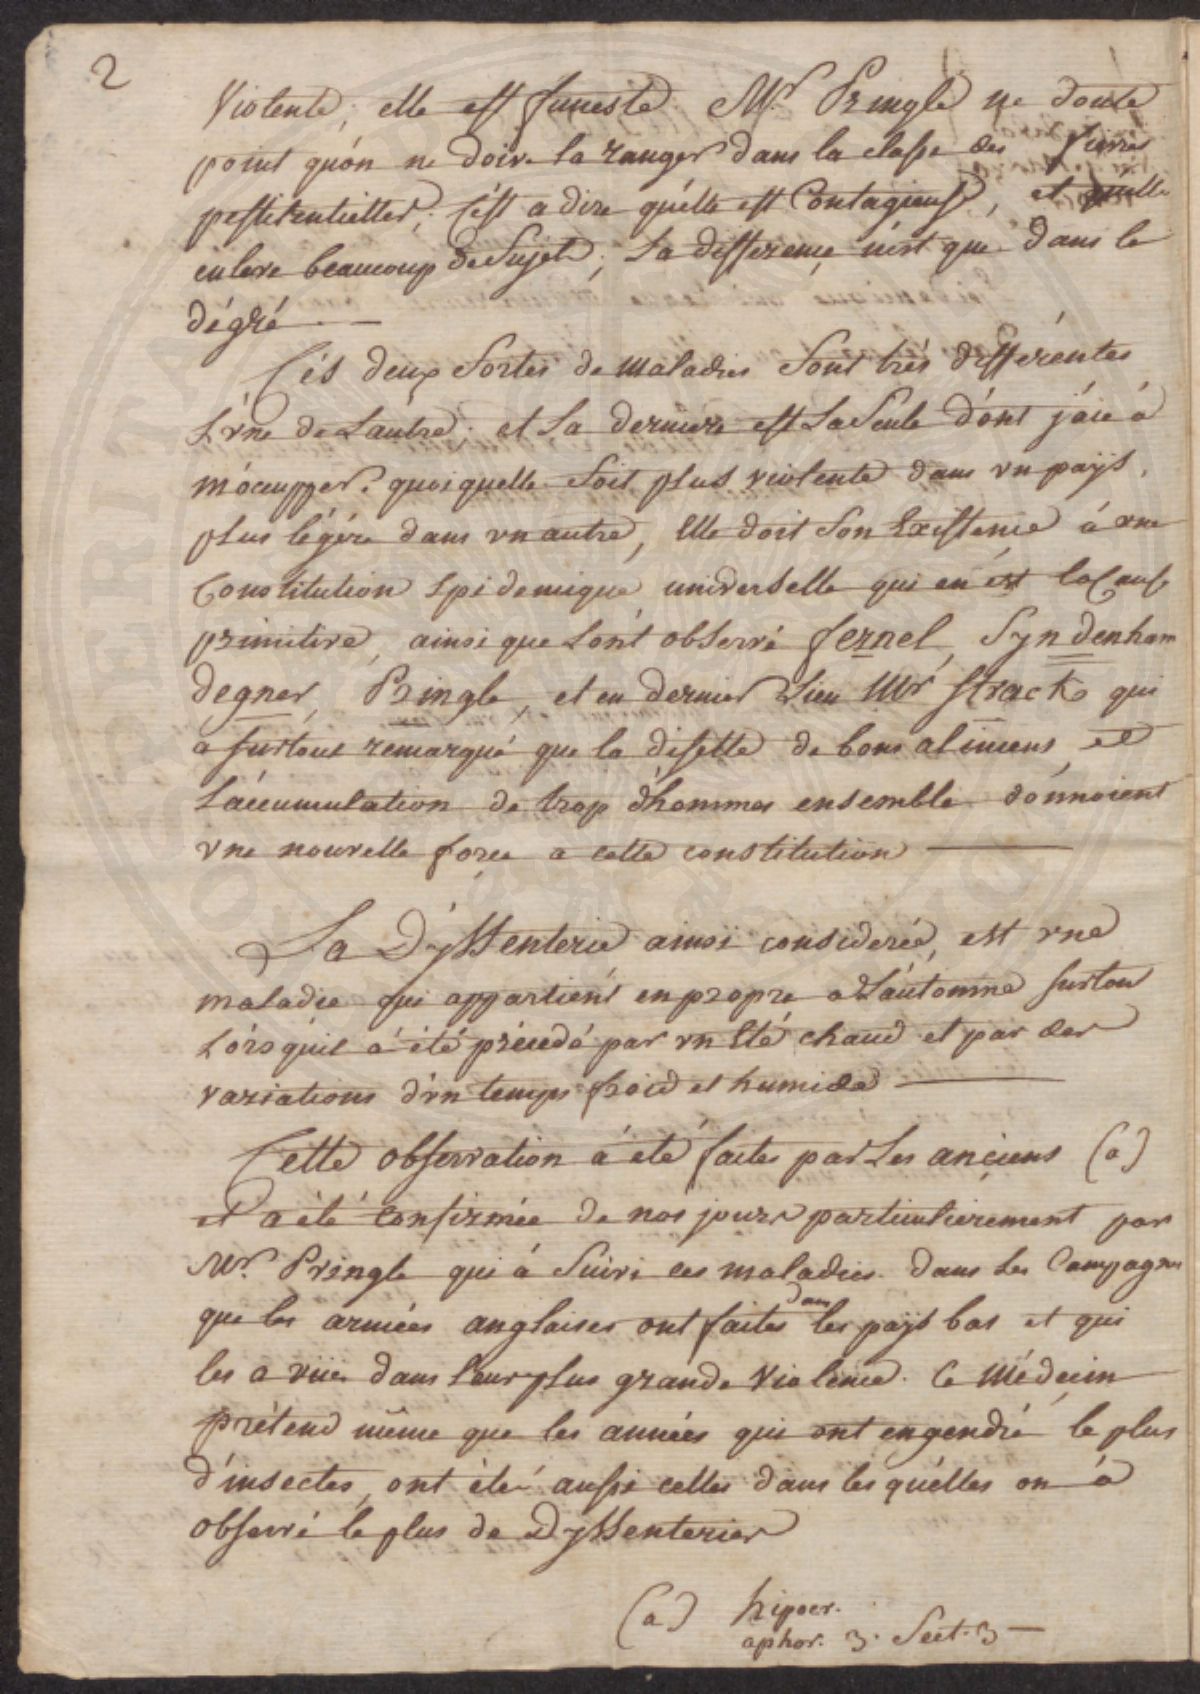 2
Violente, elle est funeste Mr. Pringle ne doute
point qu'on ne doive la ranger dans la classe des fievres
pestilentielles, C'ést a dire qu'elle est Contagieuse, et quelle
enleve beaucoup de Sujets; La difference n'est que dans le
dégré —
Cés deux Sortes de maladies Sont trés différentes
L'vne de Lautre. et La derniere est La Seule dont j'aie á
m'occupper. quoiquelle Soit plus violente dans vn païs,
plus légére dans vn autre, Elle doit Son Existence á vne
Constitution Epidemique universelle qui en est la Cause
primitive, ainsi que L'ont observé fernel, Syndenham
degner, Pringle, et en dernier Lieu Mr Strack qui
a surtout remarqué que la disette de bons alimens, et
L'accumulation de trop d'hommes ensemble donnoient
vne nouvelle force a cette constitution —
La Dÿssenterie ainsi considerée, est vne
maladie qui appartient en propre a L'autonne surtout
Lorsqu'il á été précedé par vn Eté chaud et par des
variations d'vn temps froid et humide —
Cette observation á été faites par Les anciens (a)
et a été confirmée de nos jours particulierement par
Mr. Pringle qui á Suivi ces maladies. dans Les Campagnes
que les armées anglaises ont faites dans les paÿs bas et qui
les a vües dans leur plus grande Violence. Ce Médecin
prétend même que les années qui ont engendré le plus
d'insectes, ont été aussi celles dans les quelles on á
observé le plus de Dyssenteries
(a) hipocr.
aphor. 3. Sect. 3 —